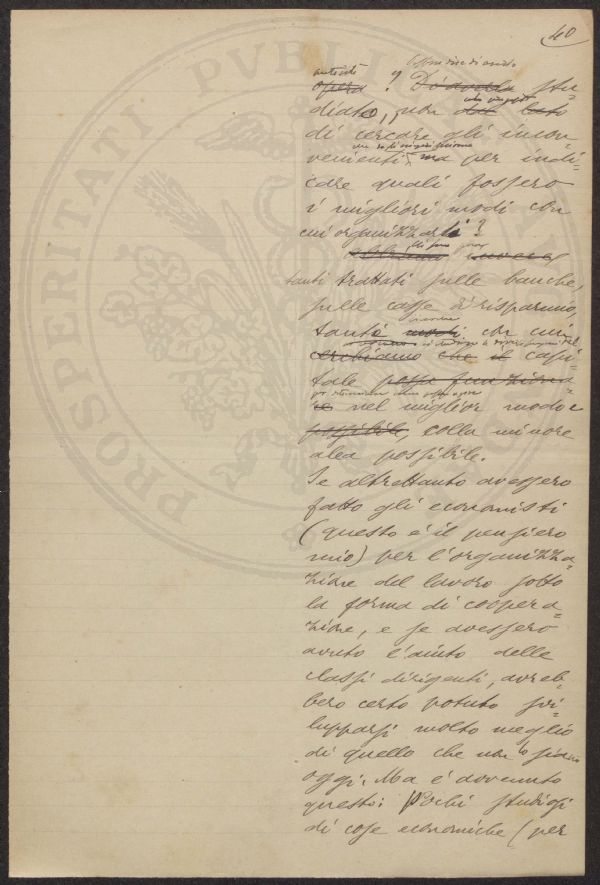 40
opera ? Dovreb stu=
diato, non dal lato
di cercare gli incon=
venienti, ma per indi=
care quali fossero
i migliori modi con
cui organizzarli?
abbiamo
tanti trattati sulle banche,
sulle casse di risparmio,
tante modi con cui
cerchiamo che il capi=
tale possa funziona=
re nel miglior modo e
possibile, colla minore
alea possibile.
Se altrettanto avessero
fatto gli economisti
(questo è il pensiero
mio) per l'organizza=
zione del lavoro sotto
la forma di coopera=
zione, e se avessero
avuto l'aiuto delle
classi dirigenti, avreb=
bero certo potuto svi=
lupparsi molto meglio
di quello che non lo siano
oggi. Ma è avvenuto
questo: Pochi studiosi
di cose economiche (per
PROSPERITATI PVBLICAE